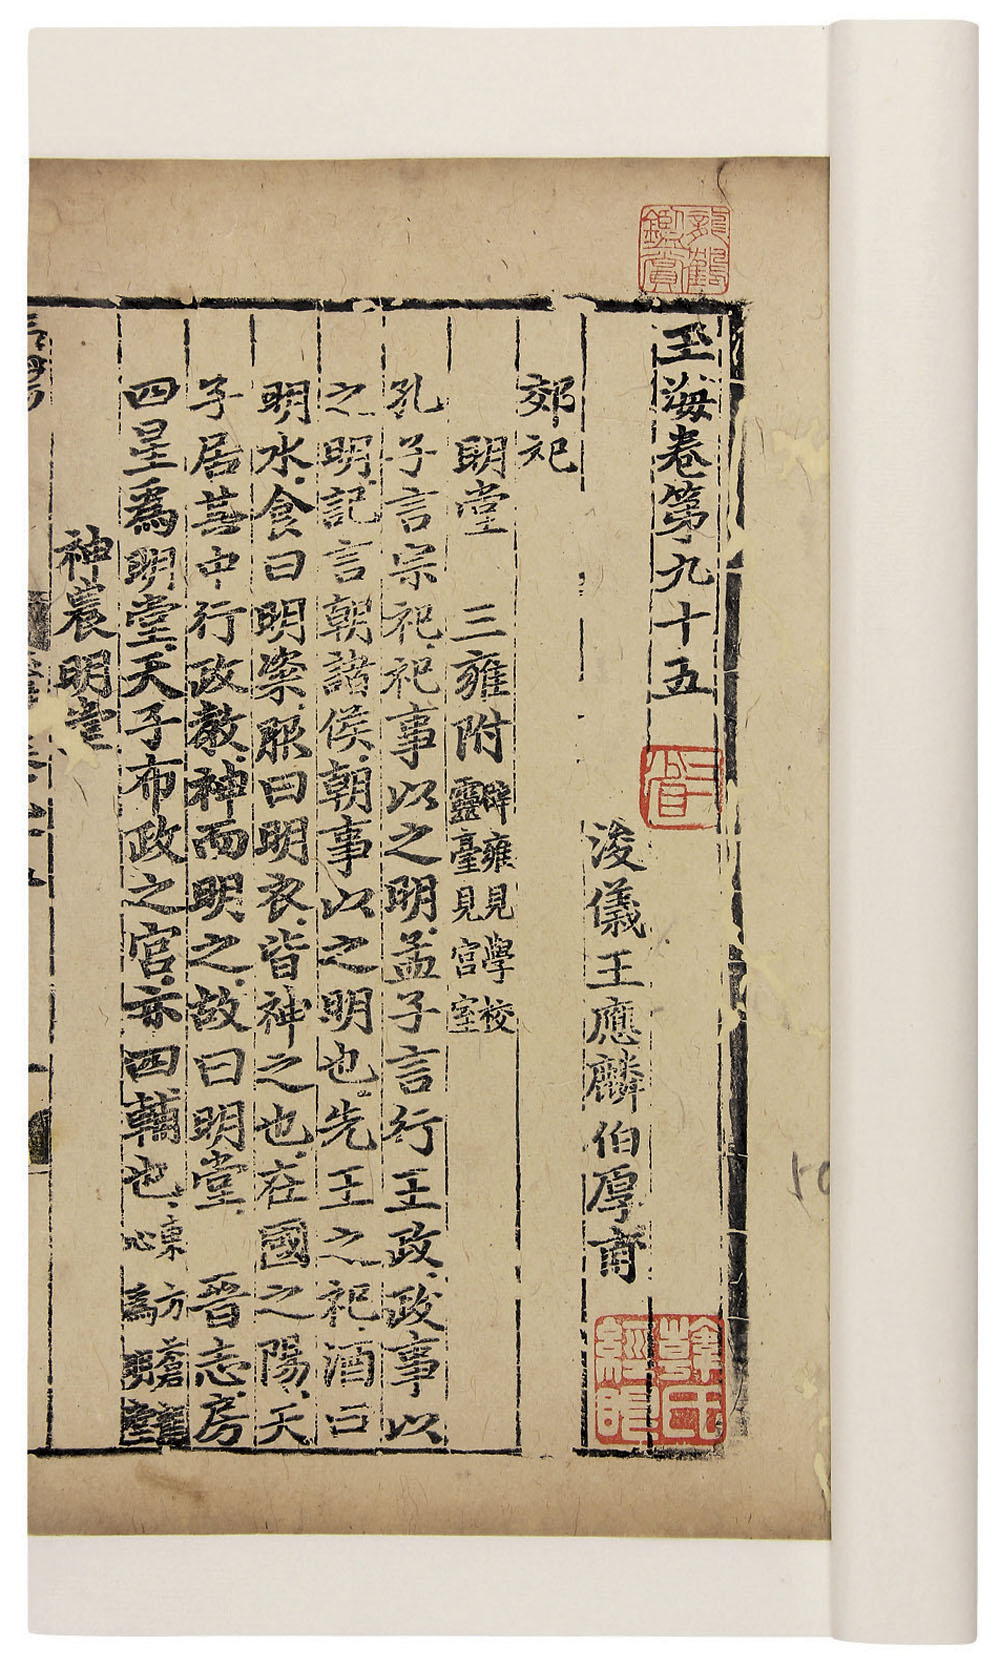 玉海卷第九十五
浚儀王應麟伯厚甫
郊祀
明堂　三雍附 辟雍見學校 靈臺見宮室
孔子言宗祀祀事以之明孟子言行王政政事以
之明記言朝諸侯朝事以之明也先王之祀酒曰
明水食曰明粢服曰明衣皆神之也在國之陽天
子居其中行政教神而明之故曰明堂　晉志房
四星為明堂天子布政之宮亦四輔也
神農明堂
龍鶴鑑賞